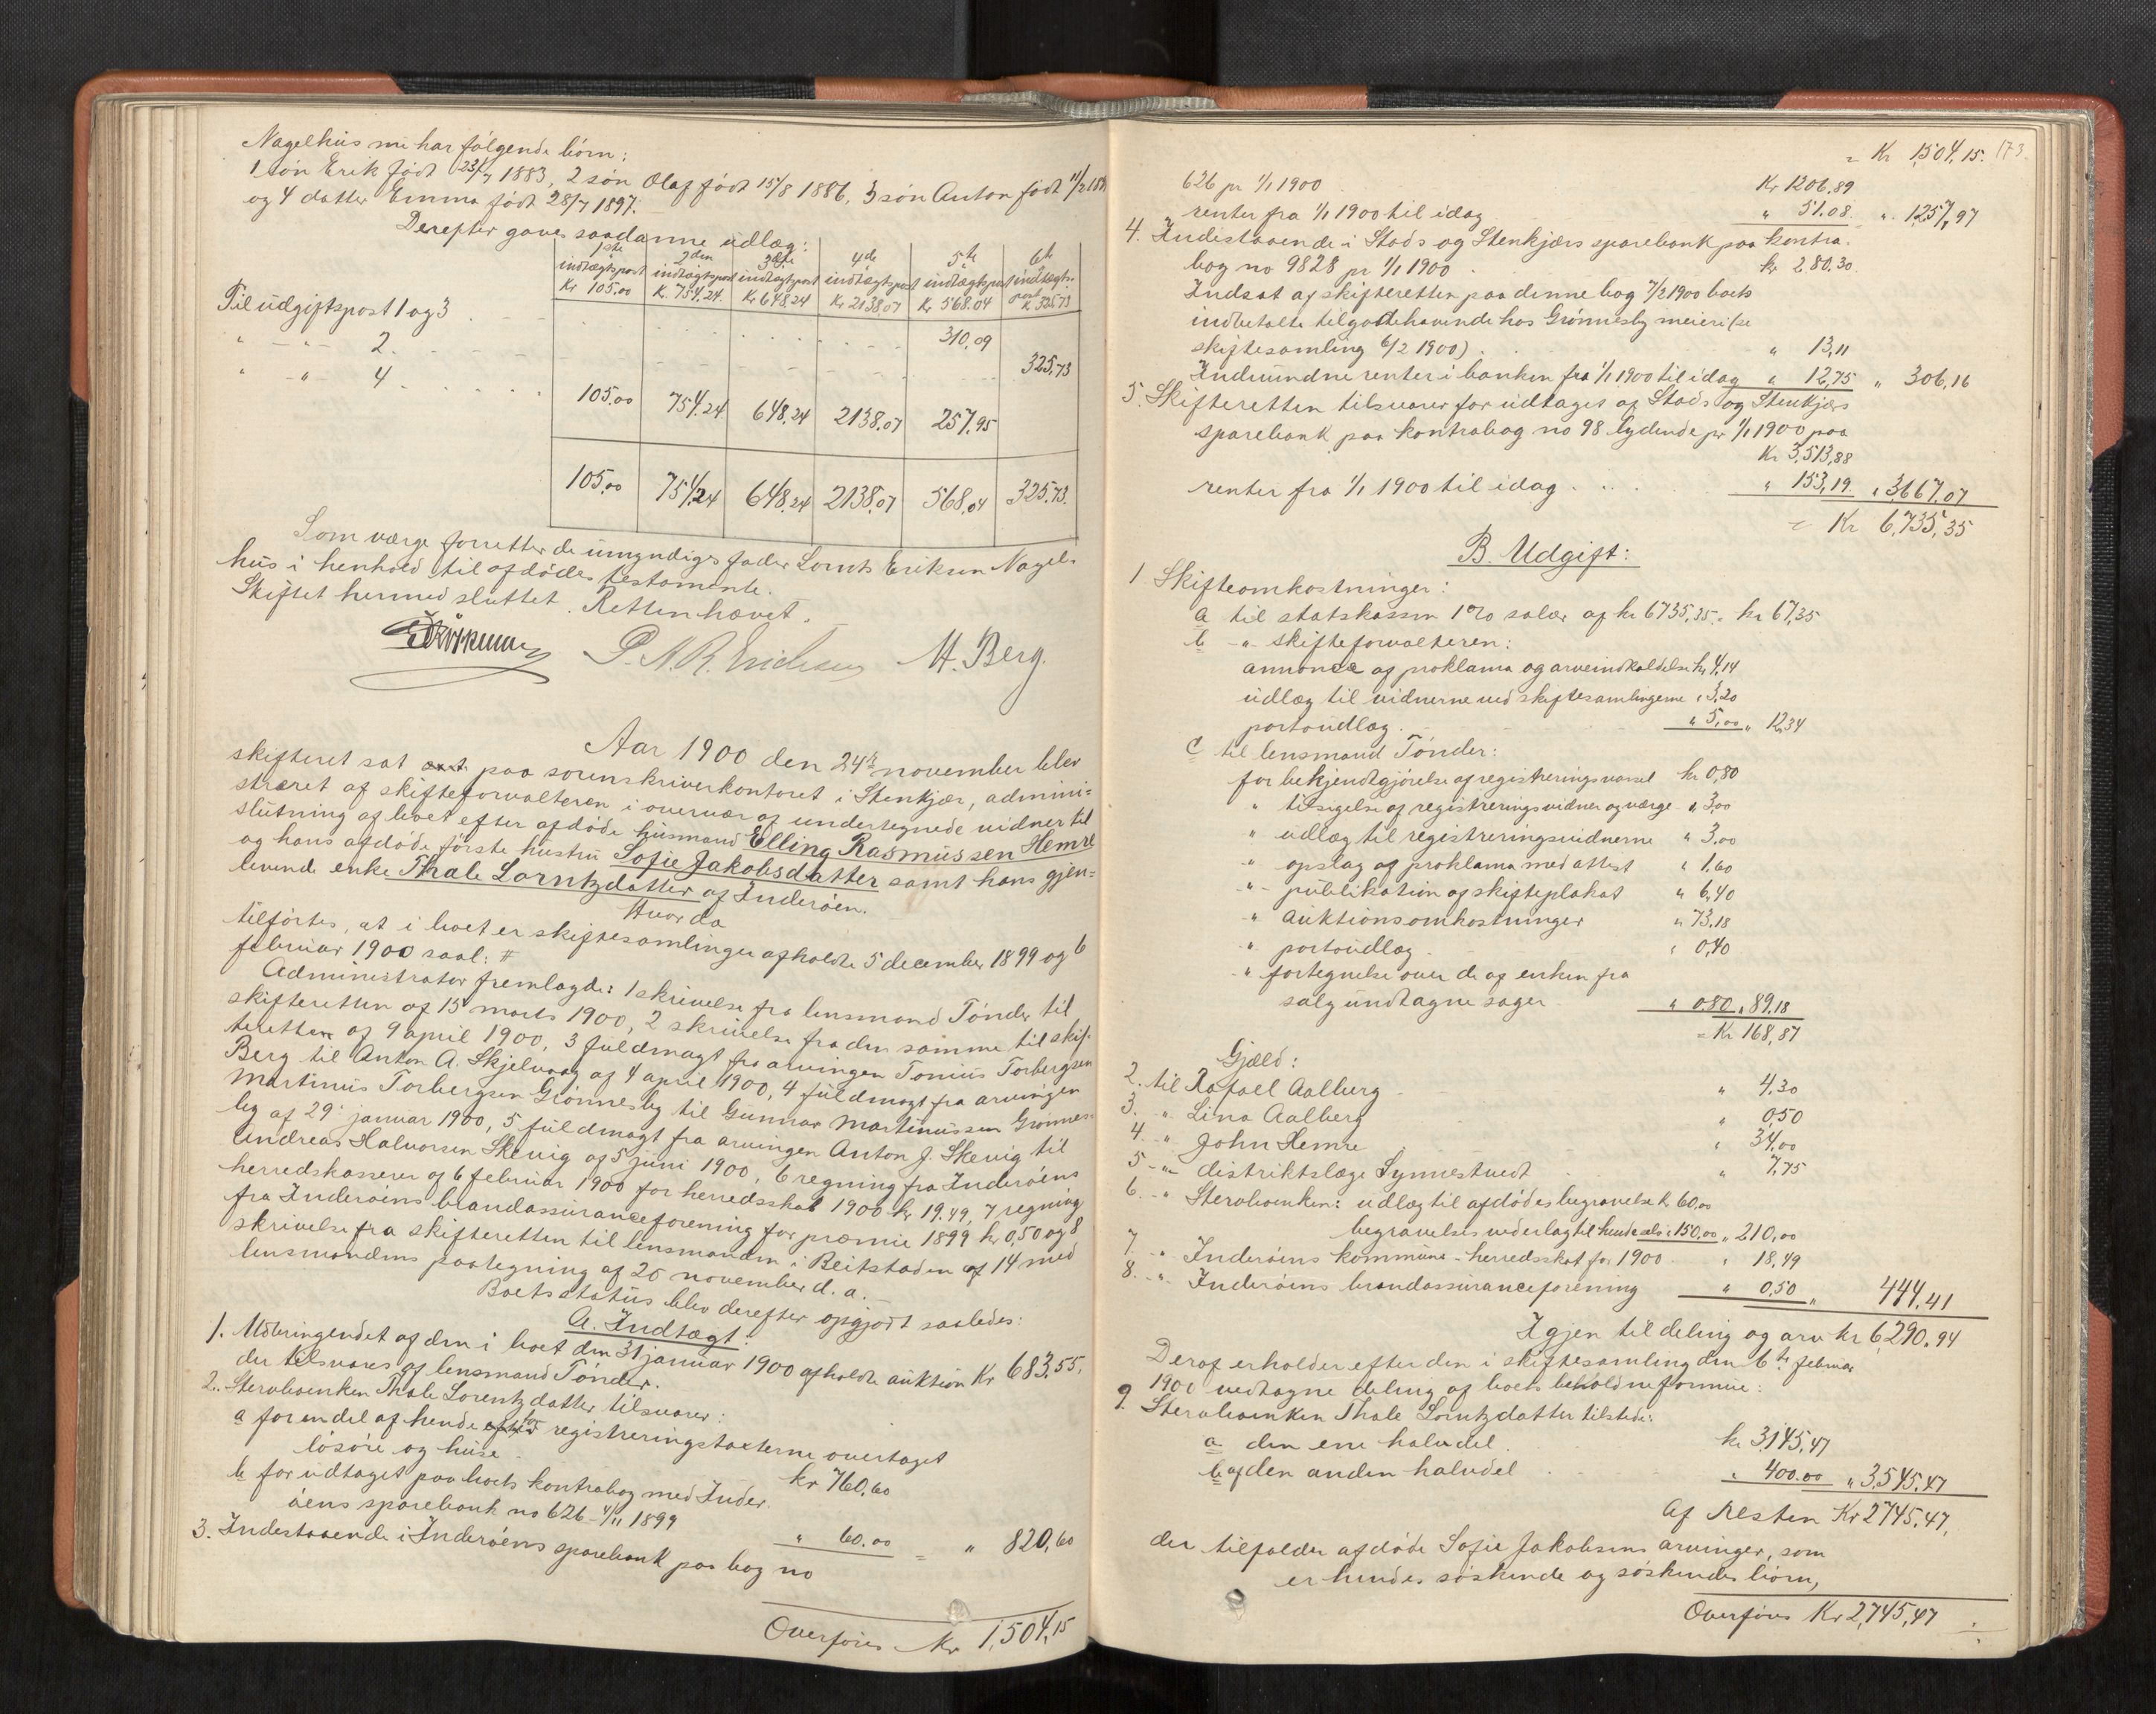 Nagelhus mi har følgende børn:
1 søn Erik født 23/7 1883, 2 søn Olaf født 15/8 1886, 3 søn Anton født 11/2 18
og 4 datter Emma født 28/7 1897.
Derefter gaves saadanne udlæg:
1ste indtægtspost Kr 105.00 2den indtægtspost K. 754.24 3die indtægtspost Kr 648,24 4de indtægtspost Kr 2138,07 5te indtægtspost Kr 568.04 6te indtægtspost K 325.73
Til udgiftspost 1 og 3 310,09
" - " - 2. 325,73
" - " 4 105.00 754.24 648,24 2138.07 257.95
105.00 754.24 648,24 2138,07 568,04 325.73.
Som værge forretter de umyndiges fader Lornts Eriksen Nagel-
hus i henhold til afdødes testamente.
Skiftet hermed sluttet. Retten hævet.
P. A. R. Erichsen M. Berg.
Aar 1900 den 24de november blev
skifteret sat paa sorenskriverkontoret i Stenkjær, admini-
streret af skifteforvalteren i overvær af undertegnede vidner til
slutning af boet efter afdøde husmand Elling Rasmussen Hemre
og hans afdøde første hustru Sofie Jakobsdatter samt hans gjen-
levende enke Thale Lorntzdatter af Inderøen.
Hvorda
tilførtes, at i boet er skiftesamlinger afholdte 5 december 1899 og 6
februar 1900 saal: #
Administrator fremlagde: 1 skrivelse fra lensmand Tønder til
skifteretten af 15 marts 1900, 2 skrivelse fra den samme til skif-
teretten af 9 april 1900, 3 fuldmagt fra arvingen Tonius Torbergsen
Berg til Anton A. Skjelvaag af 4 april 1900, 4 fuldmagt fra arvingen
Martinus Torbergsen Grønnesby til Gunnar Martinussen Grønnes-
by af 29 januar 1900, 5 fuldmagt fra arvingen Anton J. Skevig til
Andreas Halvorsen Skevig af 5 juni 1900, 6 regning fra Inderøens
herredskasserer af 6 februar 1900 for herredsskat 1900 kr 19.49, 7 regning
fra Inderøens brandassuranceforening for præmie 1899 kr 0,50 og 8
skrivelse fra skifteretten til lensmanden i Beitstaden af 14 med
lensmandens paategning af 20 november d. a.
Boets status blev derefter opgjort saaledes:
A. Indtægt.
1. Udbringendet af den i boet den 31 januar 1900 afholdte auktion Kr 683,55,
der tilsvares af lensmand Tønder.
2. Stervboenken Thale Lorentzdatter tilsvarer:
a for en del af hende efter registreringstaxterne overtaget
løsøre og huse kr 760,60
b for udtaget paa boets kontrabog med Inder-
øens sparebank no 626 - 4/11 1899 " 60.00 = " 820,60
3. Indestaaende i Inderøens sparebank paa bog no
Overføres Kr 1,504,15
= Kr 1,504,15. 173.
626 pr 1/1 1900 Kr 1206.89
renter fra 1/1 1900 til idag " 51.08 " 1257,97
4. Indestaaende i Stods og Stenkjærs sparebank paa kontra-
bog no 9828 pr 1/1 1900 kr 280.30
Indsat af skifteretten paa denne bog 7/2 1900 boets
indbetalte tilgodehavende hos Grønnesby meieri (se
skiftesamling 6/2 1900) " 13,11
Indvundne renter i banken fra 1/1 1900 til idag " 12,75 " 306,16
5. Skifteretten tilsvarer for udtaget af Stods og Stenkjærs
sparebank paa kontrabog no 98 lydende pr 1/1 1900 paa
Kr 3,513,88
renter fra 1/1 1900 til idag . . . " 153,19 " 3667,07
= Kr 6,735,35
B. Udgift:
1 Skifteomkostninger:
a til statskassen 1% salær af kr 6735,35 = kr 67,35
b " skifteforvalteren:
annonce af proklama og arveindkaldelse kr 4,14
udlæg til vidnerne ved skiftesamlingerne " 3,20
portoudlæg " 5,00 " 12,34
c til lensmand Tønder:
for bekjendtgjørelse af registreringsvarsel kr 0,80
" tilsigelse af registreringsvidner og værge " 3,00
" udlæg til registreringsvidnerne " 3,00
" opslag af proklama med attest " 1,60
" publikation af skifteplakat " 6,40
" auktionsomkostninger " 73,18
" portoudlæg " 0,40
" fortegnelse over de af enken fra
salg undtagne sager " 0,80 " 89,18
= Kr 168,87
Gjæld:
2. til Rafael Aalberg " 4.30
3. " Lina Aalberg " 0,50
4. " John Hemre " 34,00
5 - " distriktslæge Synnestvedt " 7,75
6. - " Stervboenken: udlæg til afdødes begravelse kr 60,00
begravelsesvederlag til hende selv " 150,00 " 210,00
7. " Inderøens kommune - herredsskat for 1900 " 18,49
8. " Inderøens brandassuranceforening " 0,50 " 444,41
Igjen til deling og arv kr 6,290,94
Deraf erholder efter den i skiftesamling den 6te februar
1900 vedtagne deling af boets beholdne formue:
9. Stervboenken Thale Lorntzdatter tilstede:
a den ene halvdel kr 3145,47
b af den anden halvdel " 400.00 " 3,545,47
Af Resten Kr 2745,47,
der tilfalder afdøde Sofie Jakobsens arvinger, som
er hendes søskende og søskendes børn,
Overføres Kr 2,745,47